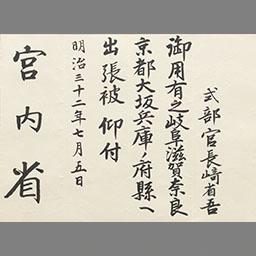 式部官長崎省吾
御用有之岐阜滋賀奈良
京都大坂兵庫ノ府縣へ
出張被 仰付
明治三十二年七月五日
宮内省